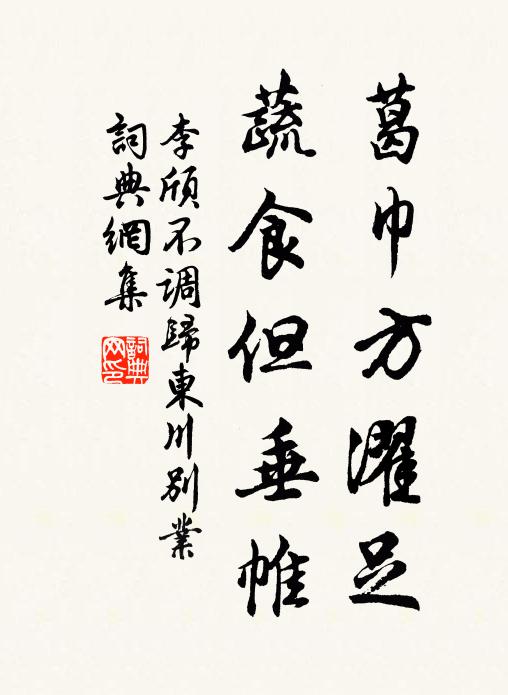 葛巾方濯足
蔬食但垂帷
李頎不調歸東川別業
詞典網集
詞典網印